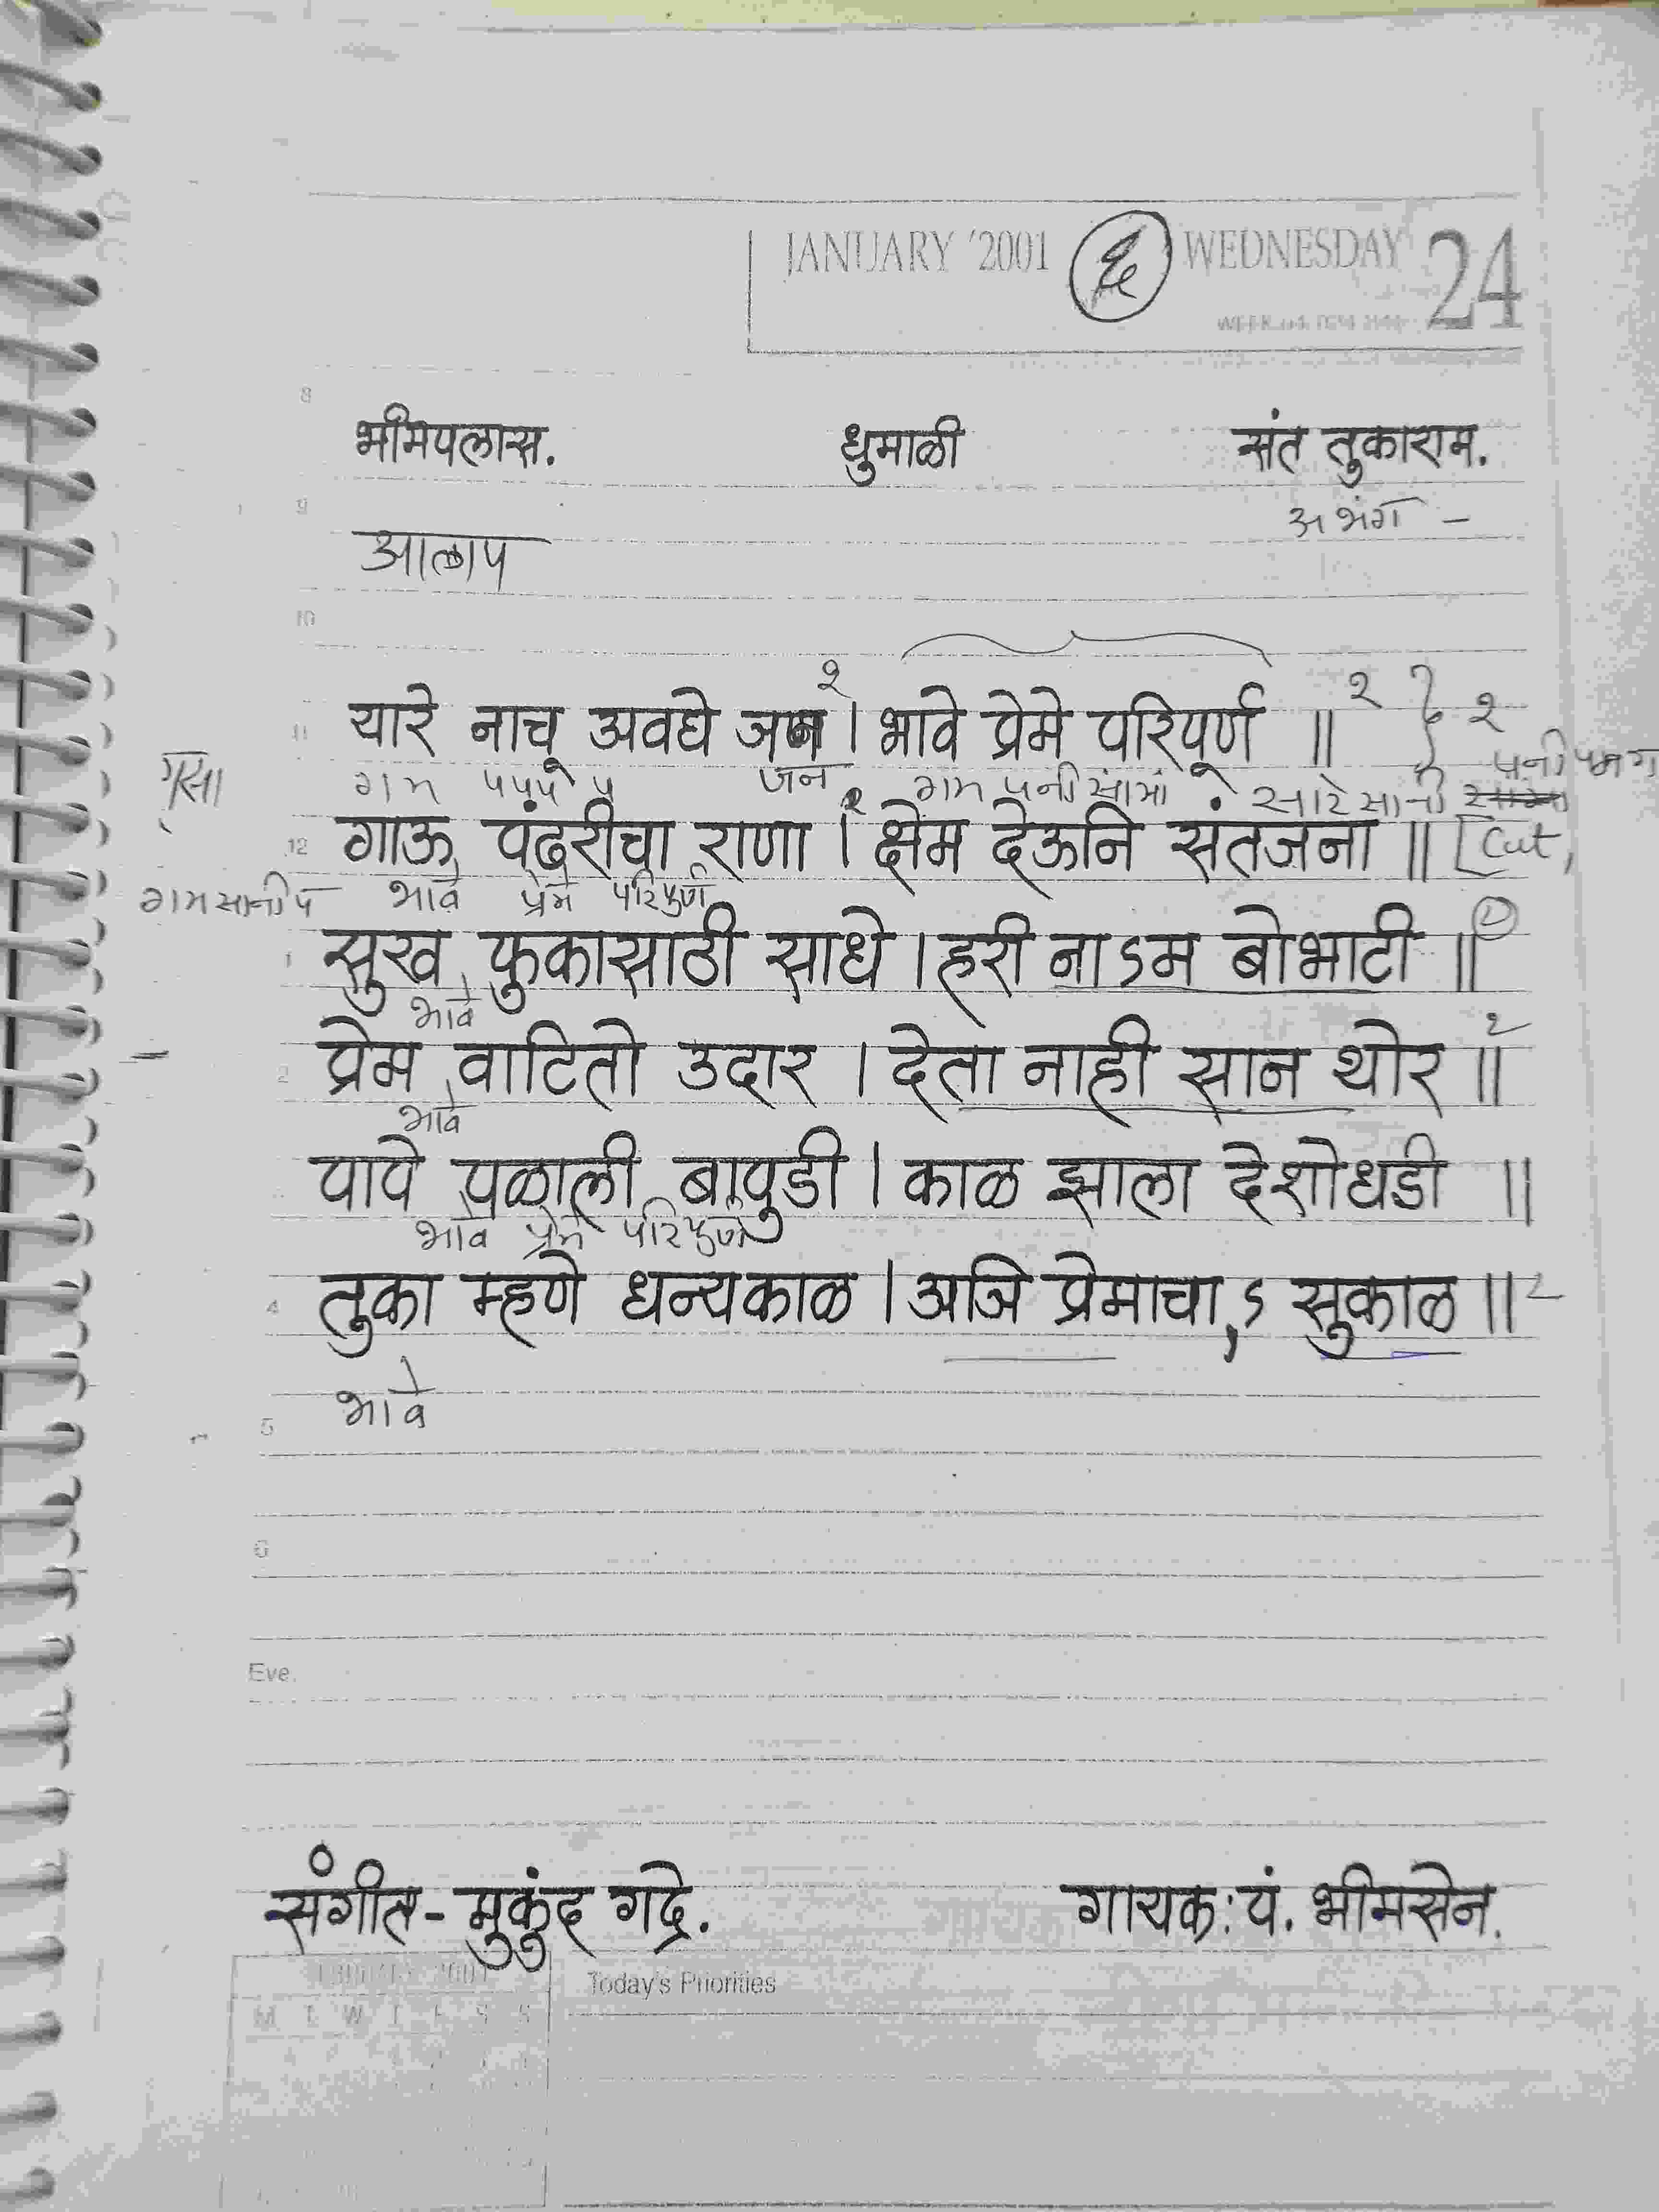 JANUARY '2001 ६ WEDNESDAY 24
8
भीमपलास. धुमाळी संत तुकाराम.
9
अभंग -
आलाप
10
२
यारे नाचू अवघे जन । भावे प्रेमे परिपूर्ण ॥ २ } २
11
गम पपप प जन गम पनी सांसां सारे सानी पनी पमग
12 गाऊ पंढरीचा राणा । २ क्षेम देऊनि संतजना ॥ [Cut,
गमसानीप भावे प्रेमे परिपूर्ण
1 सुख फुकासाठी साधे । हरी नाऽम बोभाटी ॥
भावे
2 प्रेम वाटितो उदार । देता नाही सान थोर ॥ २
भावे
पापे पळाली बापुडी । काळ झाला देशोधडी ॥
भावे प्रेमे परिपूर्ण
4 तुका म्हणे धन्यकाळ । अजि प्रेमाचा,ऽ सुकाळ ॥ २
भावे
5
6
Eve.
संगीत - मुकुंद गद्रे. गायक: पं. भीमसेन.
2001
Today's Priorities
M T W T F S S